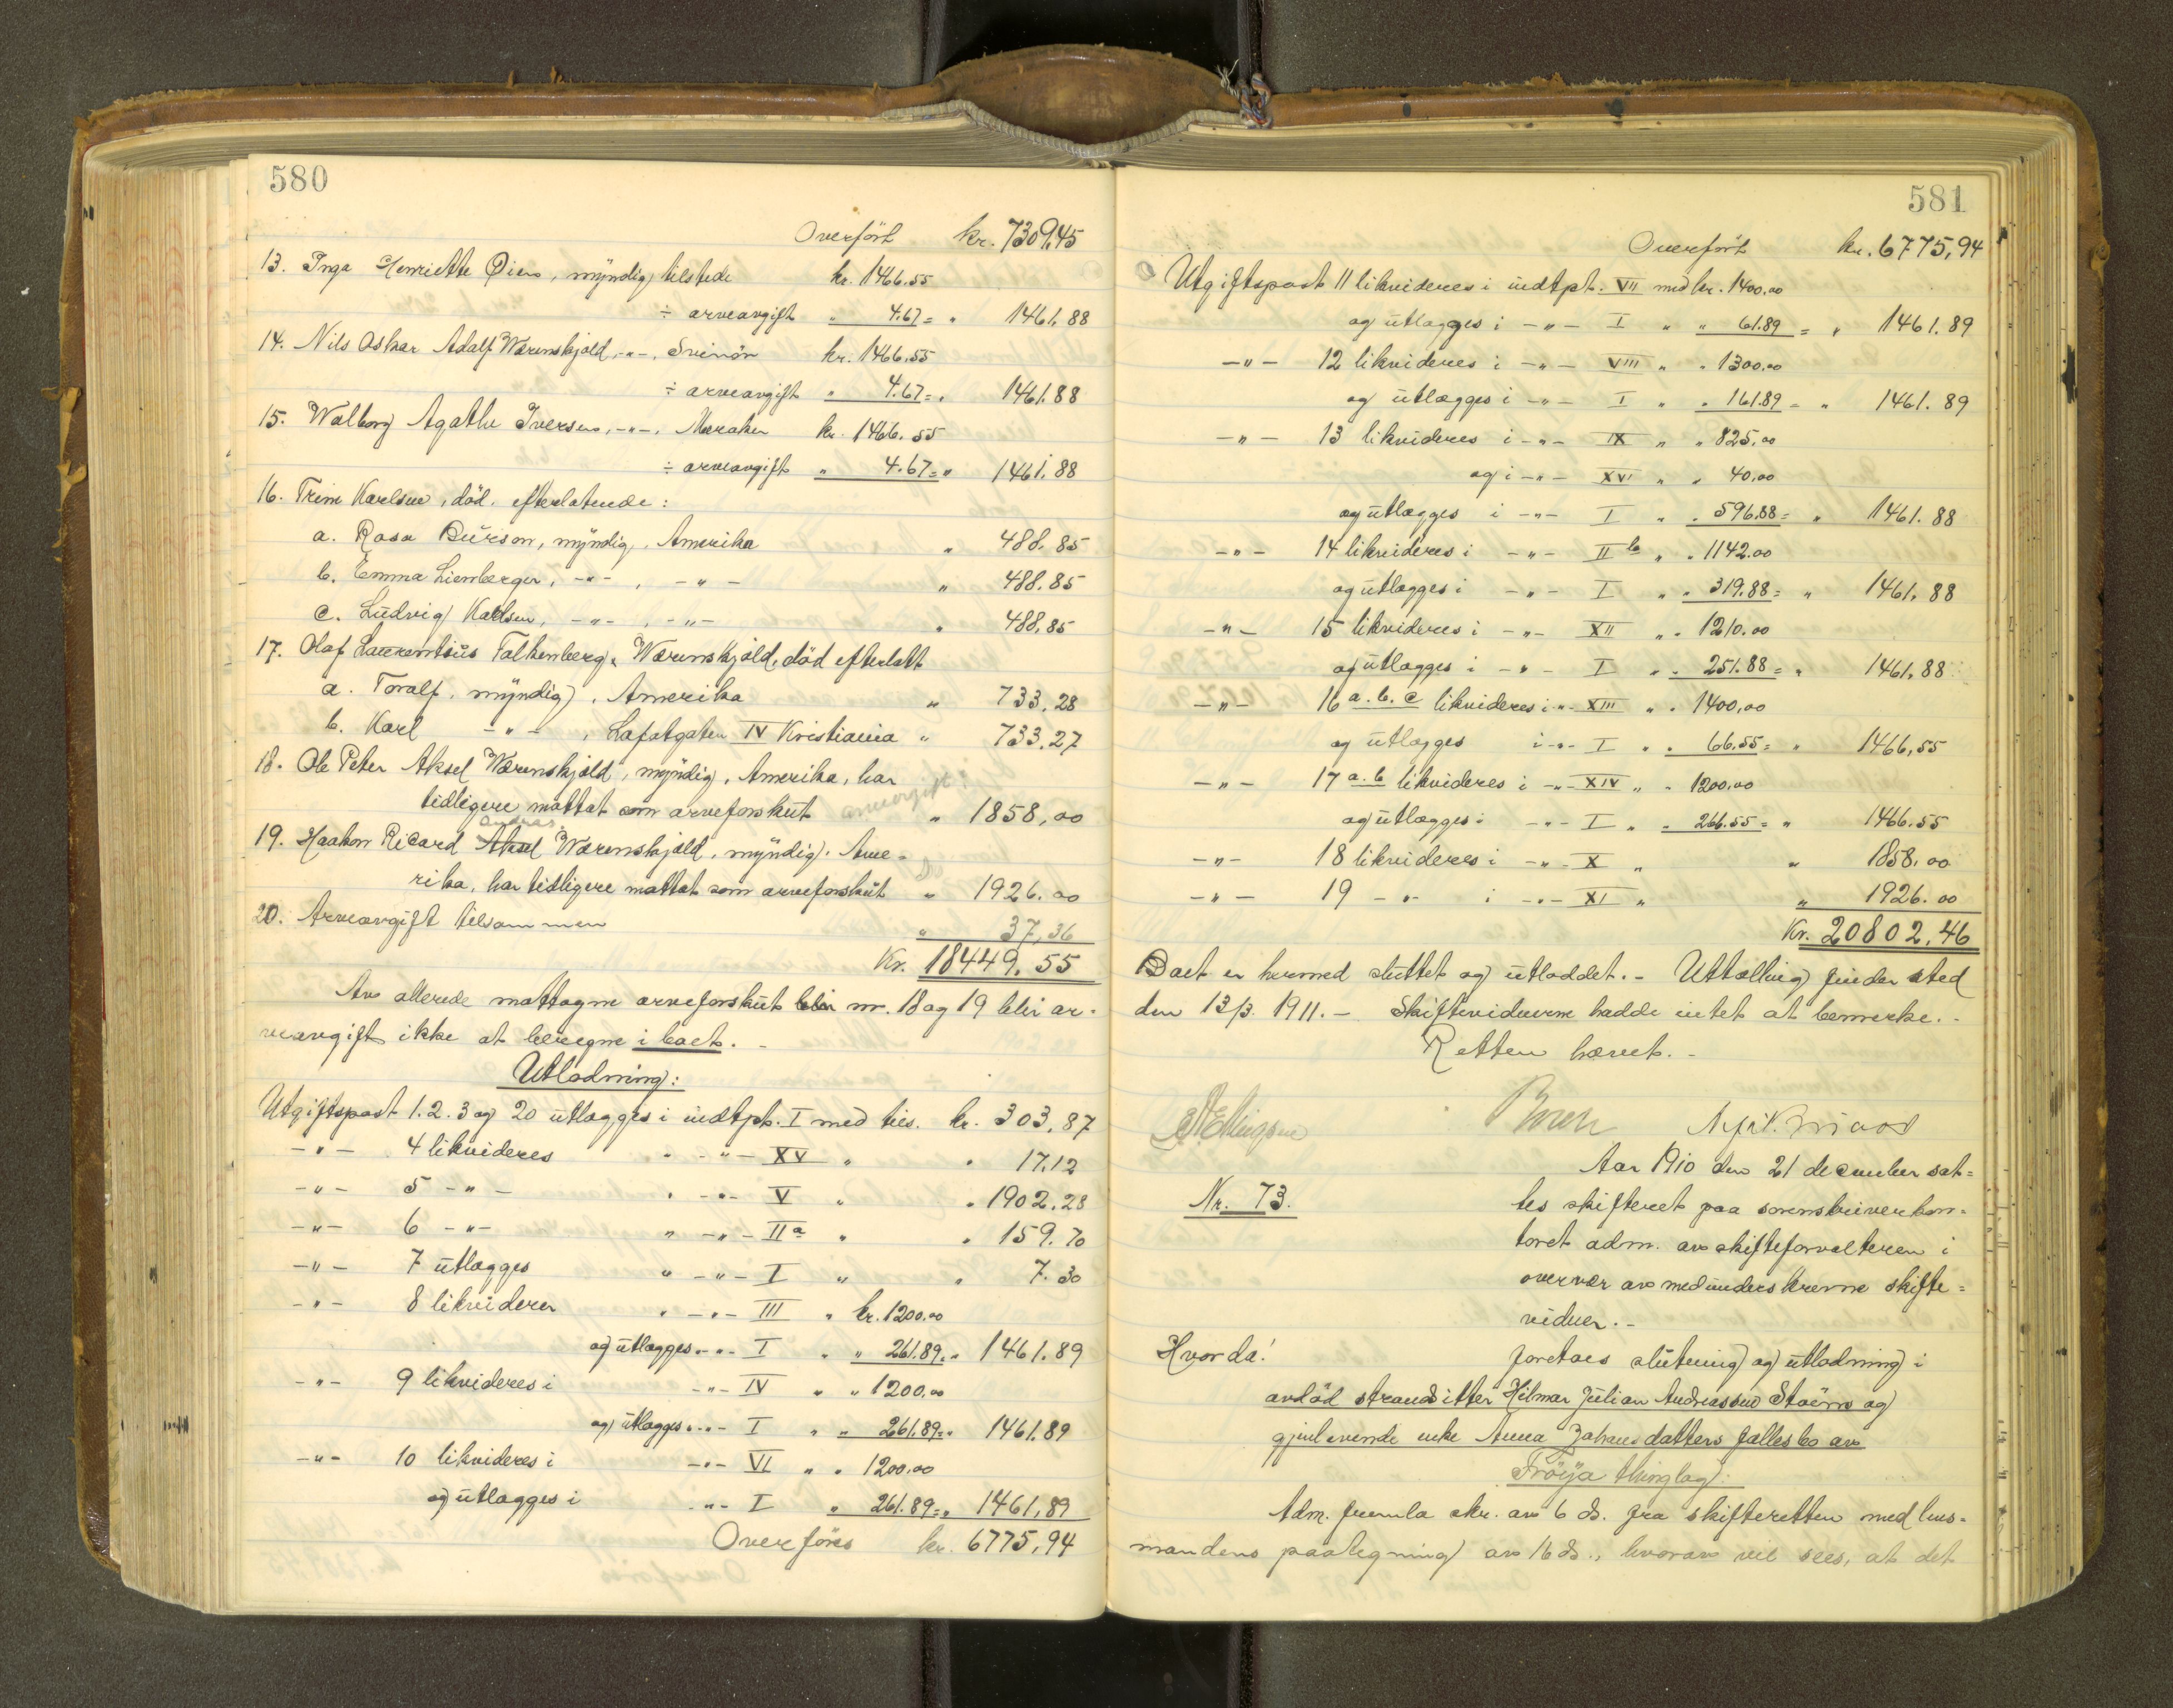 580
Overført kr. 7309,45
13. Inga Henriette Øien, myndig, tilstede kr. 1466.55
÷ arveavgift " 4.67 = " 1461,88
14. Nils Oskar Adolf Wærenskjold, -"-, Svinøn kr. 1466.55
÷ arveavgift " 4.67 = " 1461.88
15. Walborg Agathe Iversen, -"-, Meraker kr. 1466.55
÷ arveavgift " 4.67 = " 1461.88
16. Trine Karlsen, død, efterlatende:
a. Rosa Burson, myndig, Amerika " 488.85
b. Emma Lienberger, -"-, -"- " 488.85
c. Ludvig Karlsen, -"-, -"- " 488,85
17. Olaf Laurentius Falkenberg Wærenskjold, død efterlatt
a. Toralf, myndig, Amerika " 733,28
b. Karl -"-, Lafatgaten IV Kristiania " 733,27
18. Ole Peter Aksel Wærenskjold, myndig, Amerika, har
tidligere mottat som arveforskut " 1858,00
andras
19. Haakon Ricard Aksel Wærenskjold, myndig, Ame=
rika, har tidligere mottat som arveforskut " 1926.00
20. Arveavgift tilsammen " 37,36
Kr. 18449.55
Av allerede mottagne arveforskut nr. 18 og 19 blir ar-
veavgift ikke at beregne i boet. -
Utlodning:
Utgiftspost 1. 2. 3 og 20 utlægges i indtpt. I med tils. kr. 303,87
-"- 4 likvideres " -"- XV " " 17.12
-"- 5 -"- " -"- V " " 1902.28
-"- 6 -"- " -"- IIa " " 159.70
-"- 7 utlægges " -"- I " " 7.30
-"- 8 likviderer " -"- III " kr. 1200.00
og utlægges -"- I " " 261.89 = " 1461.89
-"- 9 likvideres i -"- IV " " 1200.00
og utlægges -"- I " " 261.89 = " 1461.89
-"- 10 likvideres i -"- VI " " 1200.00
og utlægges i -"- I " 261.89 = " 1461,89
Overføres kr. 6775,94
581
Overført kr. 6775,94
Utgiftspost 11 likvideres i indtpt. VII med kr. 1400.00
og utlægges i -"- I " " 61.89 = " 1461.89
-"- 12 likvideres i -"- VIII " " 1300.00
og utlægges i -"- I " " 161.89 = " 1461.89
-"- 13 likvideres i -"- IX " " 825.00
og i -"- XVI " " 40,00
og utlægges i -"- I " " 596.88 = " 1461.88
-"- 14 likvideres i -"- IIb " " 1142.00
og utlægges i -"- I " " 319.88 = " 1461.88
-"- 15 likvideres i -"- XII " " 1210.00
og utlægges i -"- I " " 251.88 = " 1461,88
-"- 16 a. b. c likvideres i -"- XIII " " 1400,00
og utlægges i -"- I " " 66.55 = " 1466,55
-"- 17 a. b likvideres i -"- XIV " " 1200.00
og utlægges i -"- I " " 266.55 = " 1466.55
-"- 18 likvideres i -"- X " " 1858.00
-"- 19 -"- i -"- XI " " 1926.00
Kr. 20802,46
Boet er hermed sluttet og utloddet. - Uttælling finder sted
den 13/3. 1911. - Skiftevidnerne hadde intet at bemerke. -
Retten hævet. -
Nr. 73.
Aar 1910 den 21 december sat=
tes skifteret paa sorenskriverkon=
toret adm. av skifteforvalteren i
overvær av medunderskrevne skifte=
vidner. -
Hvorda!
foretaes slutning og utlodning i
avdød strandsitter Hilmar Julian Andreassen Støens og
gjenlevende enke Anna Johansdatters fællesbo av
Frøya thinglag:
Adm. fremla skr. av 6 ds. fra skifteretten med lens-
mandens paategning av 16 ds., hvorav vil sees, at det